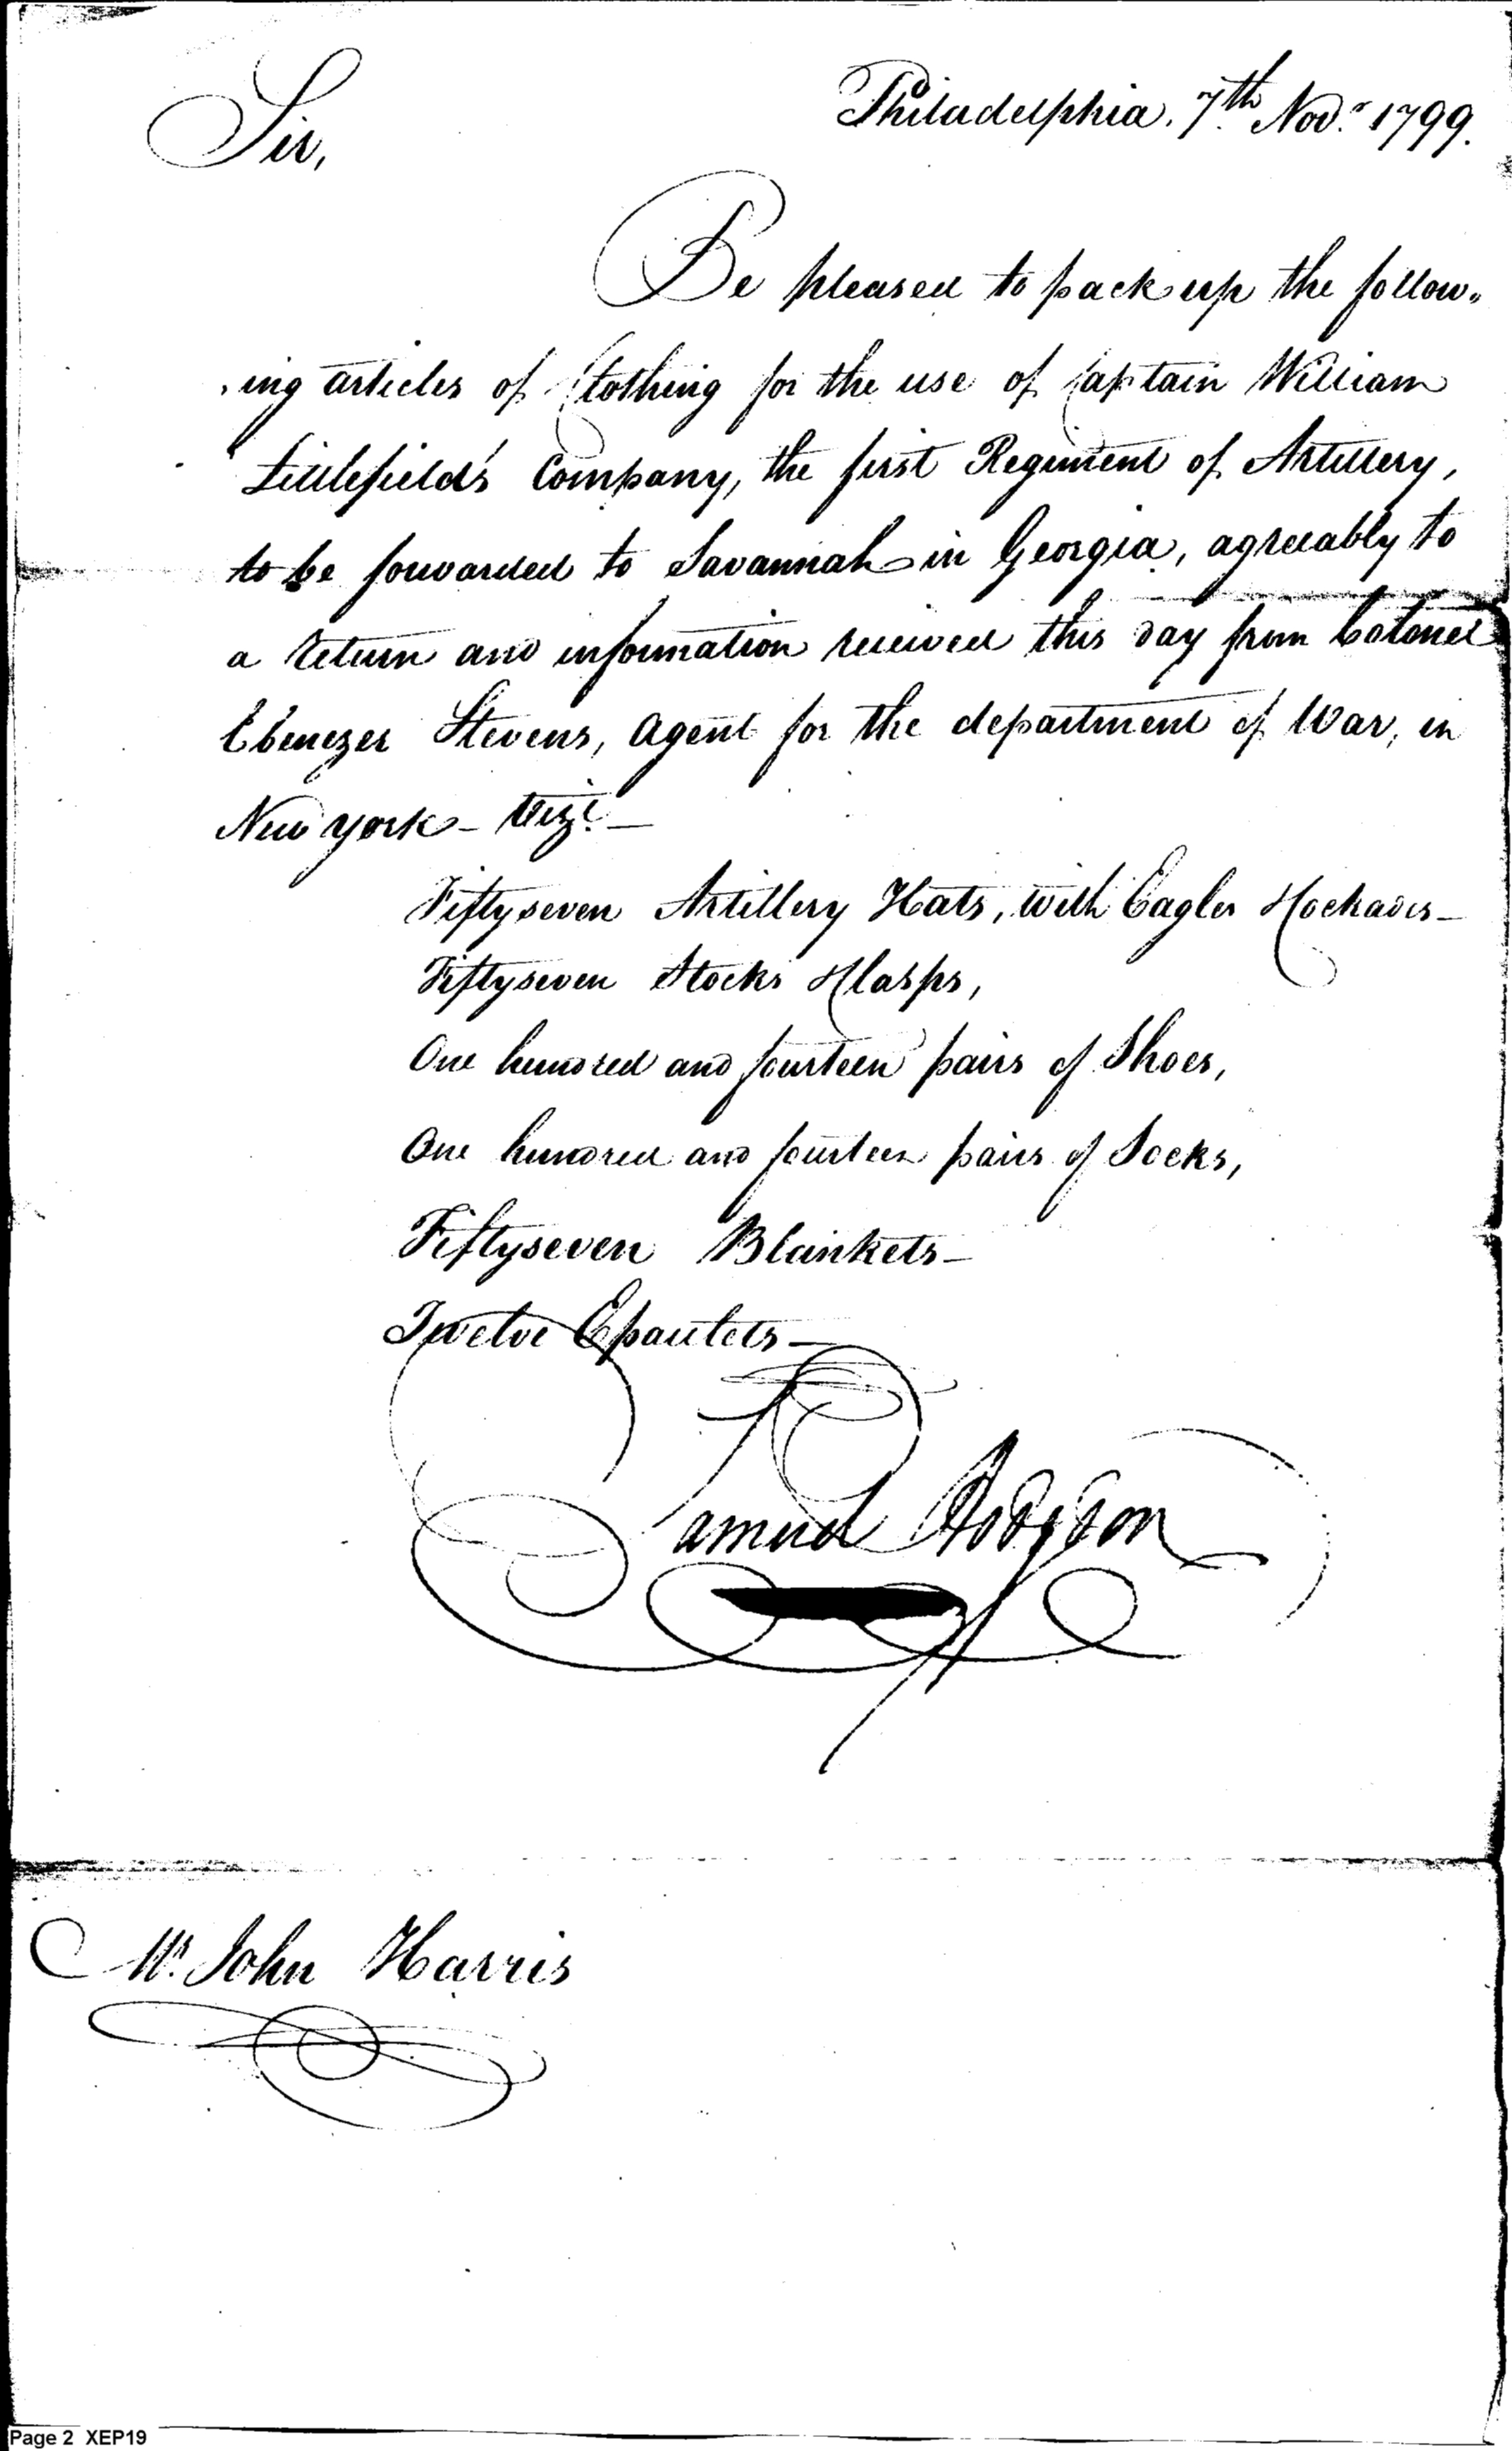 Philadelphia, 7th Novr. 1799.
Sir,
Be pleased to pack up the follow-
-ing articles of Clothing for the use of Captain William
Littlefield's Company, the first Regiment of Artillery,
to be forwarded to Savannah in Georgia, agreeably to
a return and information received this day from Colonel
Ebenezer Stevens, Agent for the department of War, in
New York - Vizt. -
Fiftyseven Artillery Hats, with Eagles & Cockades -
Fiftyseven Stocks & Clasps,
One hundred and fourteen pairs of Shoes,
One hundred and fourteen pairs of Socks,
Fiftyseven Blankets -
Twelve Epaulets -
Samuel Hodgdon
Mr. John Harris
Page 2 XEP19